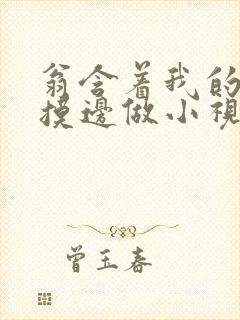 翁含着我的
摸邊做小視
曾玉春